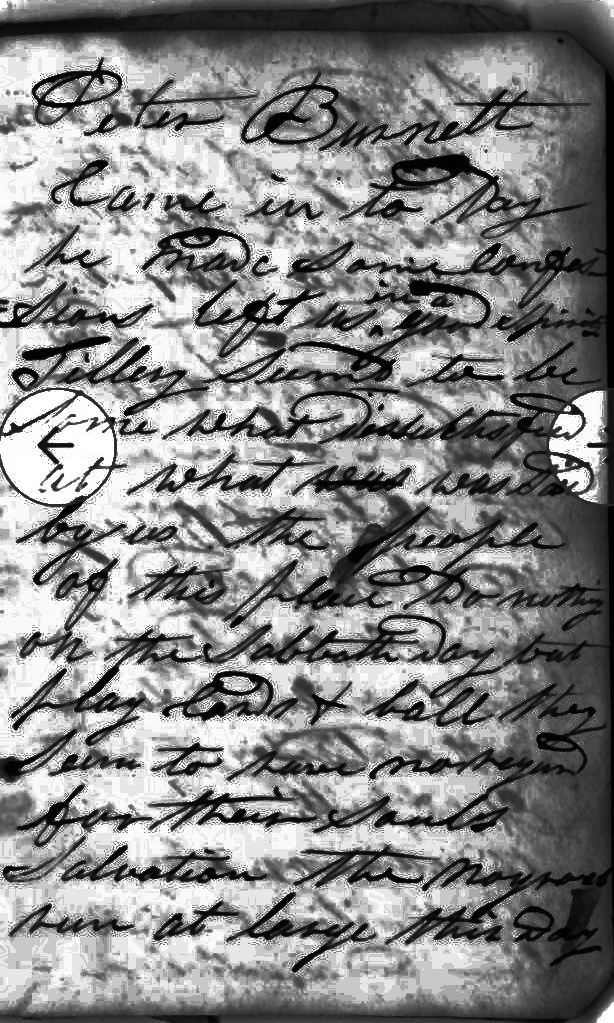 Peter Burnett
Came in to day
he made Some Confes
sions left us in a good Spirits
Tillery Seems to be
Some what dissattisfied
at what was
by us the people
of this place Do nothing
on the Sabbath day but
play Cards & ball they
Seem to have no regard
for their Souls
Salvation the Negroes
run at large this day